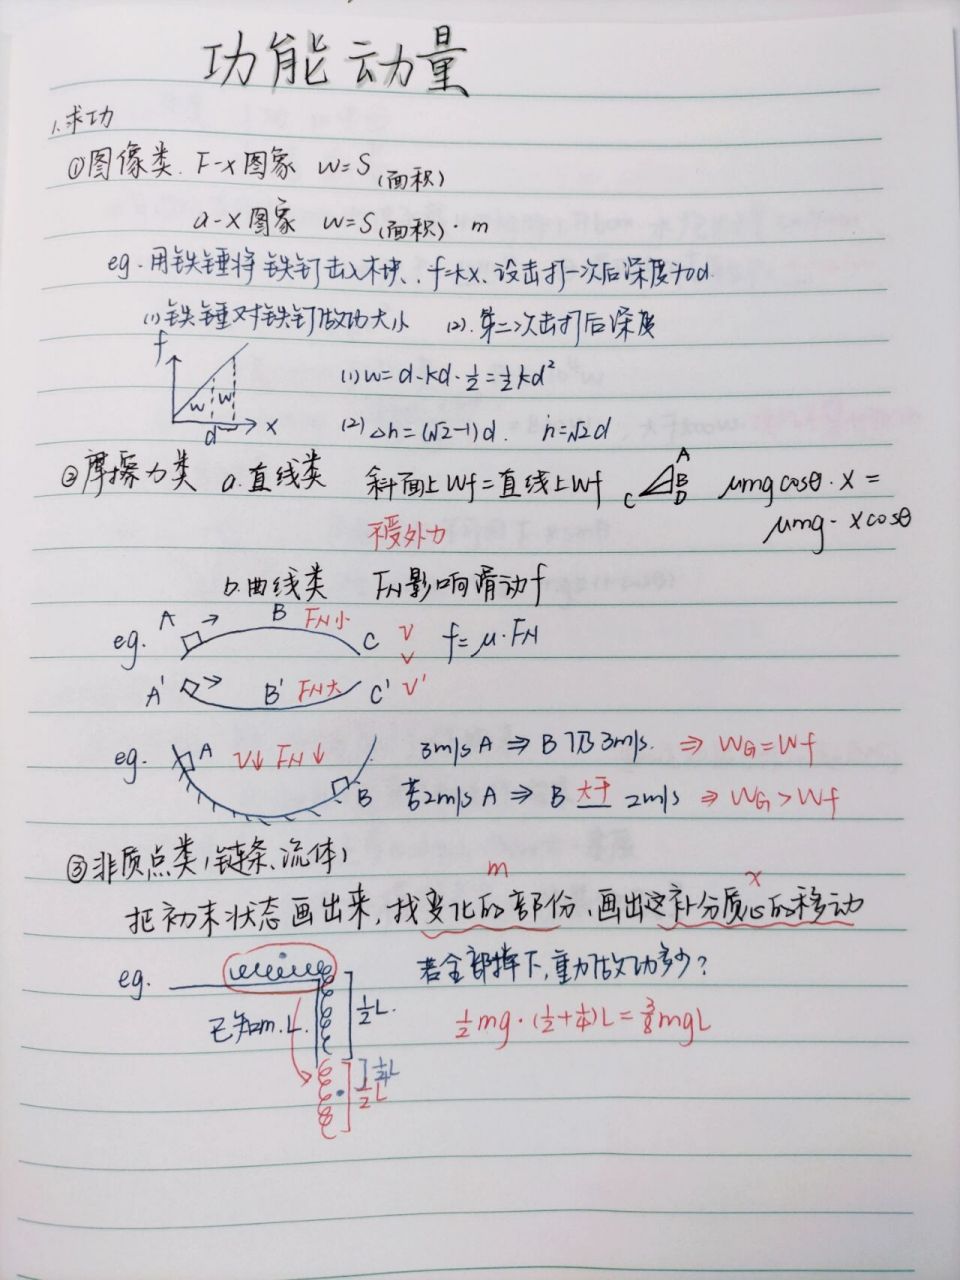 功能动量
1.求功
①图像类. F-x图象 W=S(面积)
a-x图象 W=S(面积)·m
eg.用铁锤将铁钉击入木块、f=kx、设击打一次后深度为d.
(1)铁锤对铁钉做功大小 (2).第二次击打后深度
f
W W
d x
(1)W=d·kd·½=½kd²
(2)Δh=(√2-1)d. h=√2d
②摩擦力类 a.直线类 斜面上Wf=直线上Wf
A
B
C D
μmgcosθ·x=
μmg·xcosθ
不受外力
b.曲线类 FN影响滑动f
eg. A → B FN小 C v f=μ·FN
A' → B' FN大 C' v'
eg. A v↓ FN↓ B
3m/s A ⇒ B 仍3m/s. ⇒ WG=Wf
若2m/s A ⇒ B 大于 2m/s ⇒ WG>Wf
③非质点类(链条、流体)
m x
把初末状态画出来,找变化的部份、画出这补分质心的移动
eg. 若全部掉下,重力做功多少?
已知m.L. ½L.
½mg·(½+¼)L=⅜mgL
¼L
½L